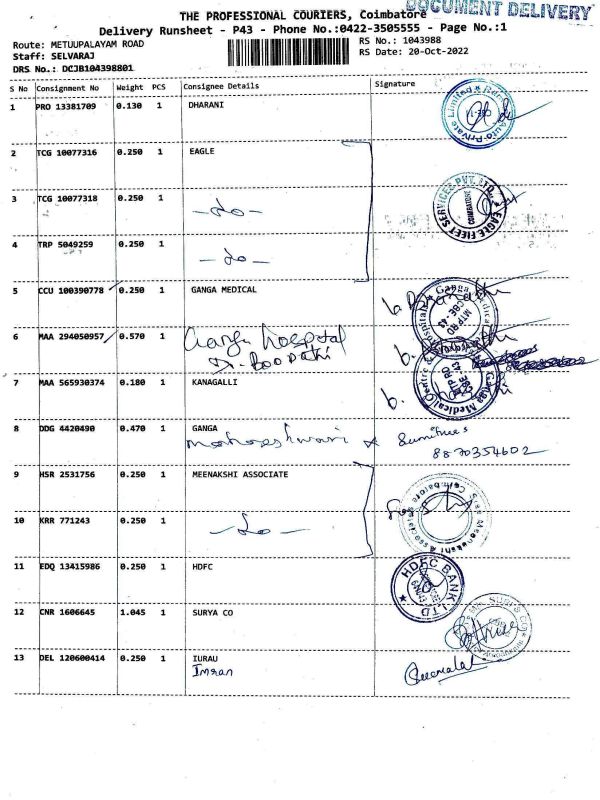 DOCUMENT DELIVERY
THE PROFESSIONAL COURIERS, Coimbatore
Delivery Runsheet - P43 - Phone No.:0422-3505555 - Page No.:1
Route: METUUPALAYAM ROAD
RS No.: 1043988
Staff: SELVARAJ
RS Date: 20-Oct-2022
DRS No.: DCJB104398801
S No Consignment No Weight PCS Consignee Details Signature
1 PRO 13381709 0.130 1 DHARANI
2 TCG 10077316 0.250 1 EAGLE
3 TCG 10077318 0.250 1 -do-
EAGLE FLEET SERVICES PVT. LTD.
COIMBATORE
4 TRP 5049259 0.250 1 -do-
5 CCU 100390778 0.250 1 GANGA MEDICAL
6 MAA 294050957 0.570 1 Ganga hospital
Dr. Boopathi
Ganga Medical Centre & Hospitals
MTP RD
CBE-43
7 MAA 565930374 0.180 1 KANAGALLI
8 DDG 4420490 0.470 1 GANGA
Maheshwari
8870354602
9 HSR 2531756 0.250 1 MEENAKSHI ASSOCIATE
10 KRR 771243 0.250 1 -do-
11 EDQ 13415986 0.250 1 HDFC
HDFC BANK LTD
12 CNR 1606645 1.045 1 SURYA CO
13 DEL 120600414 0.250 1 IURAU
Imran